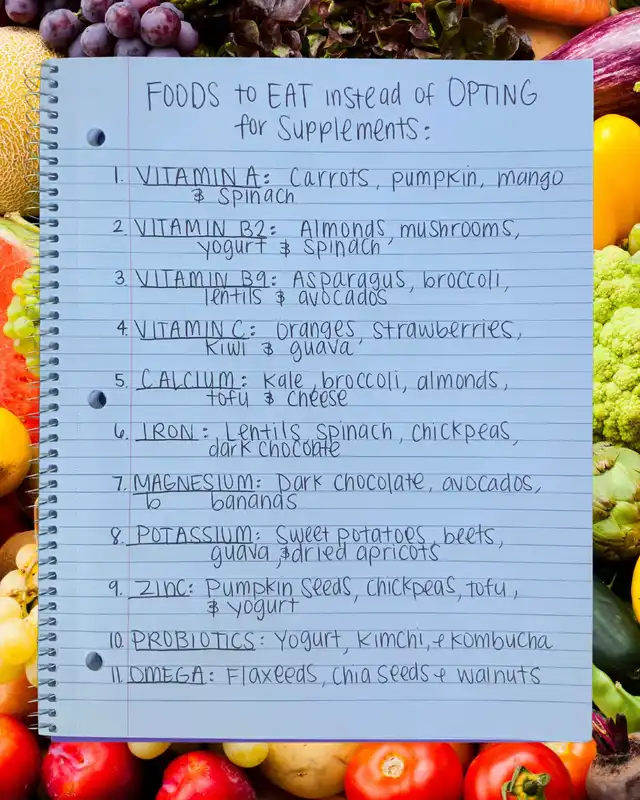 FOODS to EAT instead of OPTING
for Supplements:
1. VITAMIN A: Carrots, pumpkin, mango
& Spinach
2. VITAMIN B2: Almonds, mushrooms,
yogurt & Spinach
3. VITAMIN B9: Asparagus, broccoli,
lentils & avocados
4. VITAMIN C: oranges, strawberries,
kiwi & guava
5. CALCIUM: Kale, broccoli, almonds,
tofu & cheese
6. IRON: Lentils, spinach, chickpeas,
dark chocolate
7. MAGNESIUM: Dark chocolate, avocados,
b bananas
8. POTASSIUM: Sweet potatoes, beets,
guava, & dried apricots
9. ZINC: Pumpkin Seeds, chickpeas, tofu,
& yogurt
10. PROBIOTICS: Yogurt, Kimchi, + Kombucha
11. OMEGA: Flaxeeds, chia seeds + walnuts